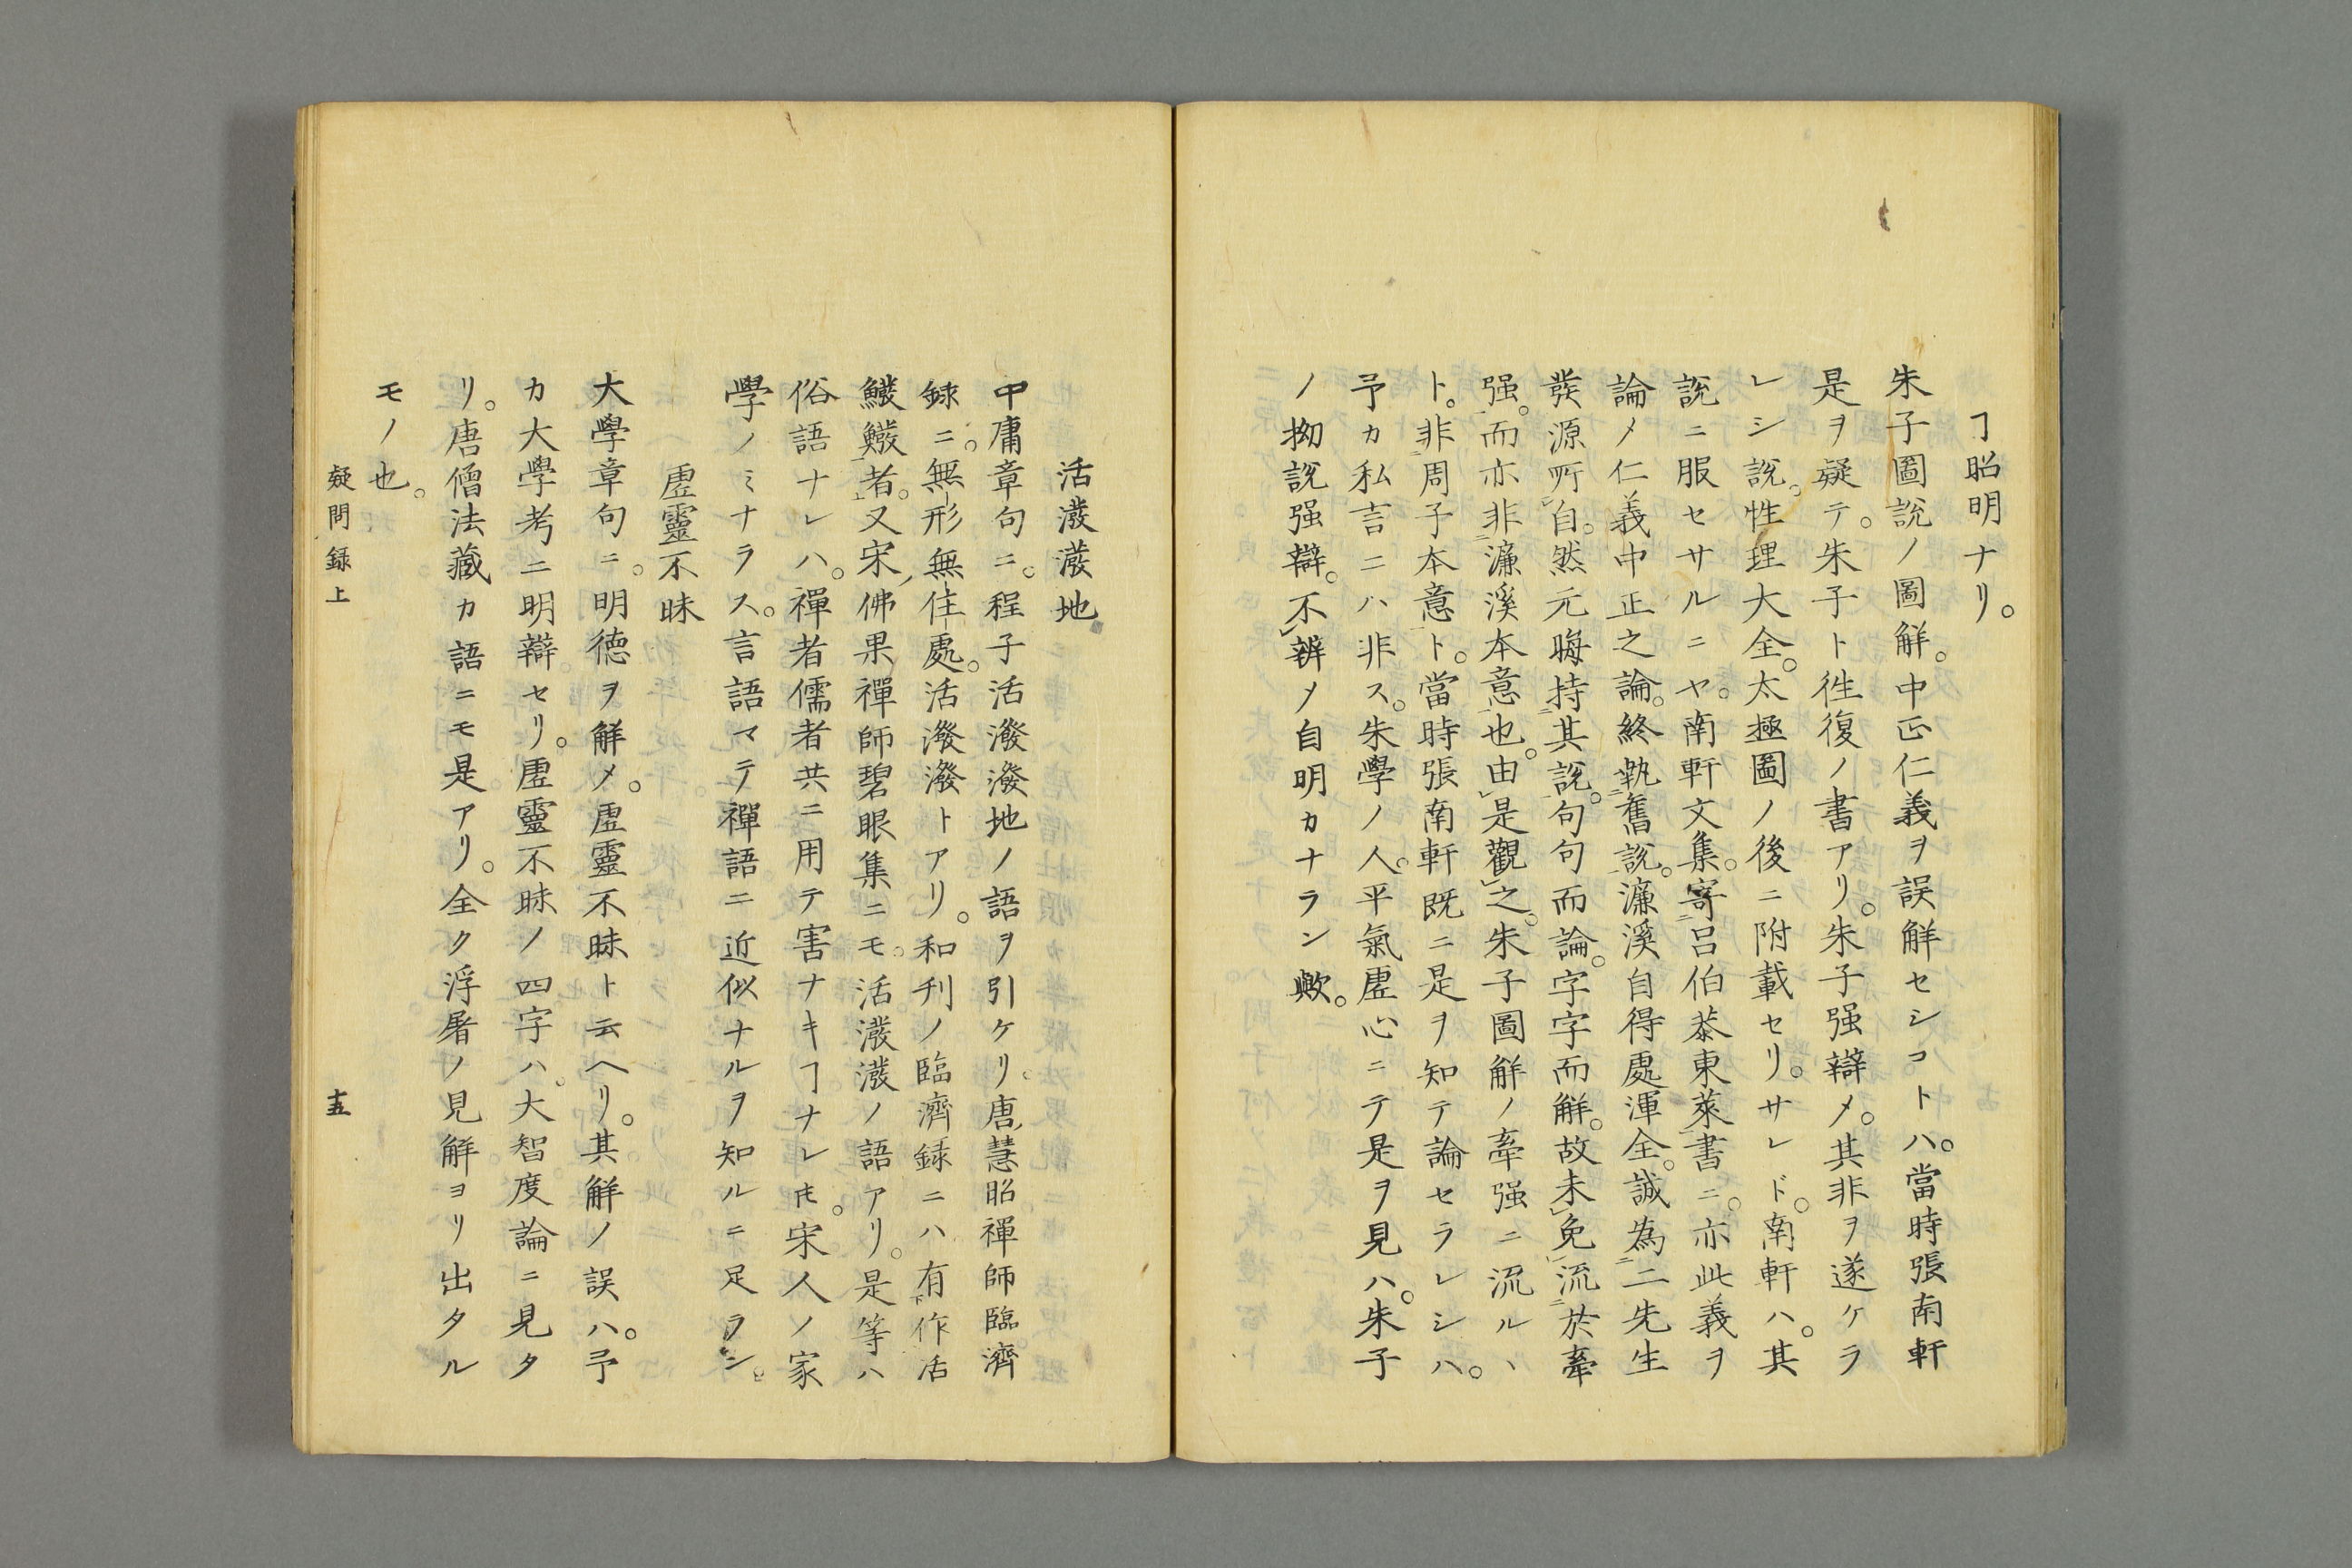 ヿ昭明ナリ。
朱子圖説ノ圖解。中正仁義ヲ誤解セシコトハ。當時張南軒
是ヲ疑テ。朱子ト徃復ノ書アリ。朱子强辯メ。其非ヲ遂ケラ
レシ説。性理大全。太極圖ノ後ニ附載セリ。サレド。南軒ハ。其
説ニ服セサルニヤ。南軒文集。寄呂伯恭東萊書ニ。亦此義ヲ
論メ仁義中正之論。終執舊説。濂溪自得處渾全。誠為二先生
發源所自。然元晦持其説。句句而論。字字而解。故未免流於牽
强。而亦非濂溪本意也。由是觀之。朱子圖解ノ牽强ニ流ルヽ
ト。非周子本意ト。當時張南軒既ニ是ヲ知テ論セラレシハ。
予カ私言ニハ非ス。朱學ノ人。平氣虛心ニテ是ヲ見ハ。朱子
ノ拗説强辯。不辨メ自明カナラン歟。
活潑潑地
中庸章句ニ。程子活潑潑地ノ語ヲ引ケリ。唐慧昭禪師臨濟
録ニ。無形無住處。活潑潑トアリ。和刊ノ臨濟録ニハ有作活
鱍鱍者。又宋佛果禪師碧眼集ニモ。活潑潑ノ語アリ。是等ハ
俗語ナレハ。禪者儒者共ニ用テ害ナキヿナレ𪜈。宋人ノ家
學ノミナラス。言語マテ禪語ニ近似ナルヲ知ルニ足ラシ。
虛靈不昧
大學章句ニ。明徳ヲ解メ。虛靈不昧ト云ヘリ。其解ノ誤ハ。予
カ大學考ニ明辯セリ。虛靈不昧ノ四字ハ。大智度論ニ見タ
リ。唐僧法藏カ語ニモ是アリ。全ク浮屠ノ見解ヨリ出タル
モノ也。
疑問録上
十五